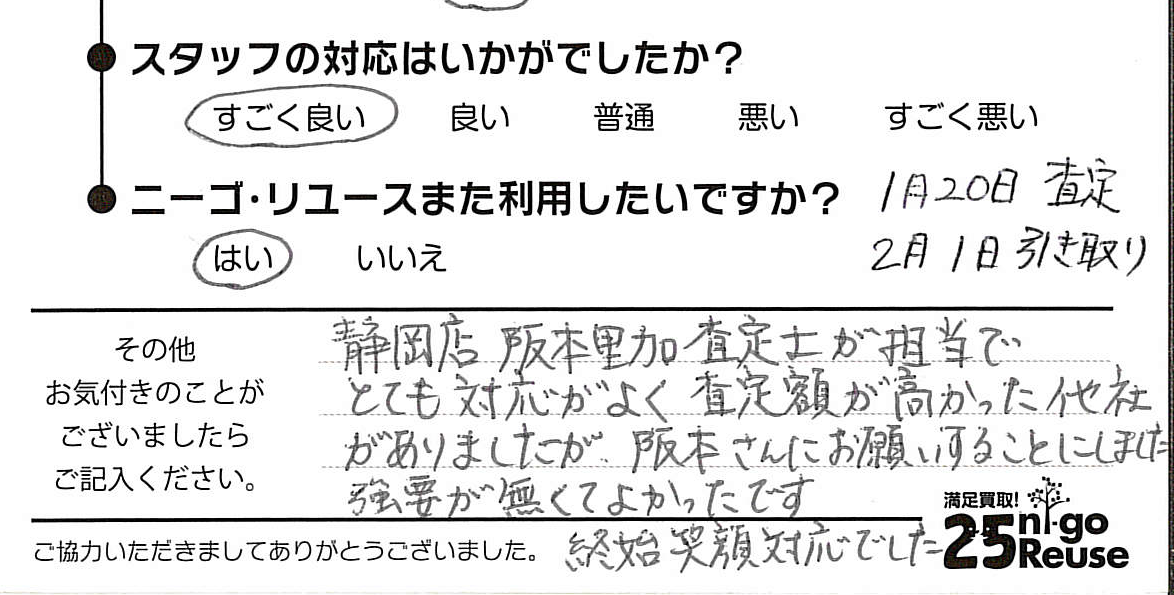 スタッフの対応はいかがでしたか？
すごく良い 良い 普通 悪い すごく悪い
ニーゴ・リユースまた利用したいですか？
1月20日 査定
2月1日 引き取り
はい いいえ
その他
お気付きのことが
ございましたら
ご記入ください。
静岡店 阪本里加 査定士が担当で
とても対応がよく 査定額が高かった他社
がありましたが、阪本さんにお願いすることにしました
強要が無くてよかったです
終始笑顔対応でした
ご協力いただきましてありがとうございました。
満足買取!
25 ni-go
Reuse